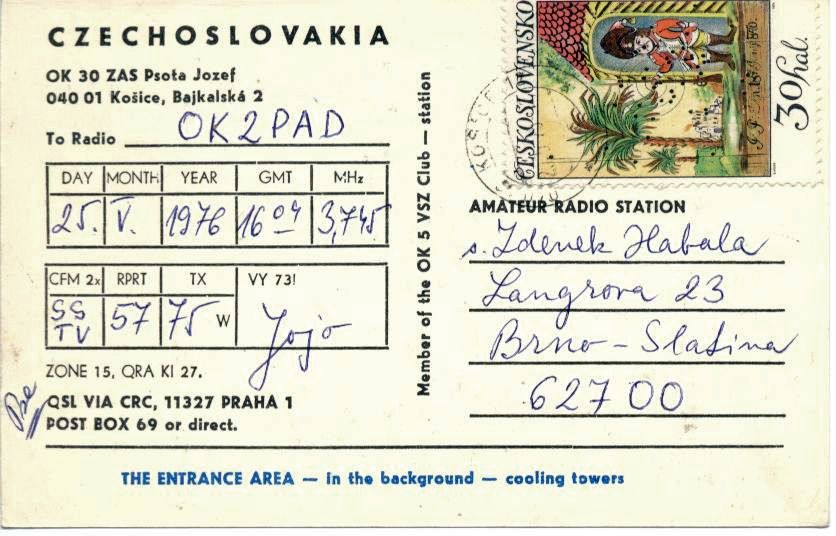 CZECHOSLOVAKIA
OK 30 ZAS Psota Jozef
040 01 Košice, Bajkalská 2
To Radio OK2PAD
DAY MONTH YEAR GMT MHz
25. V. 1976 16 04 3,745
CFM 2x RPRT TX VY 73!
SS TV 57 75 W Jojo
ZONE 15, QRA KI 27.
Pse QSL VIA CRC, 11327 PRAHA 1
POST BOX 69 or direct.
Member of the OK 5 VSZ Club — station
ČESKOSLOVENSKO
30 hal.
AMATEUR RADIO STATION
s. Zdenek Habala
Langrova 23
Brno - Slatina
627 00
THE ENTRANCE AREA — in the background — cooling towers